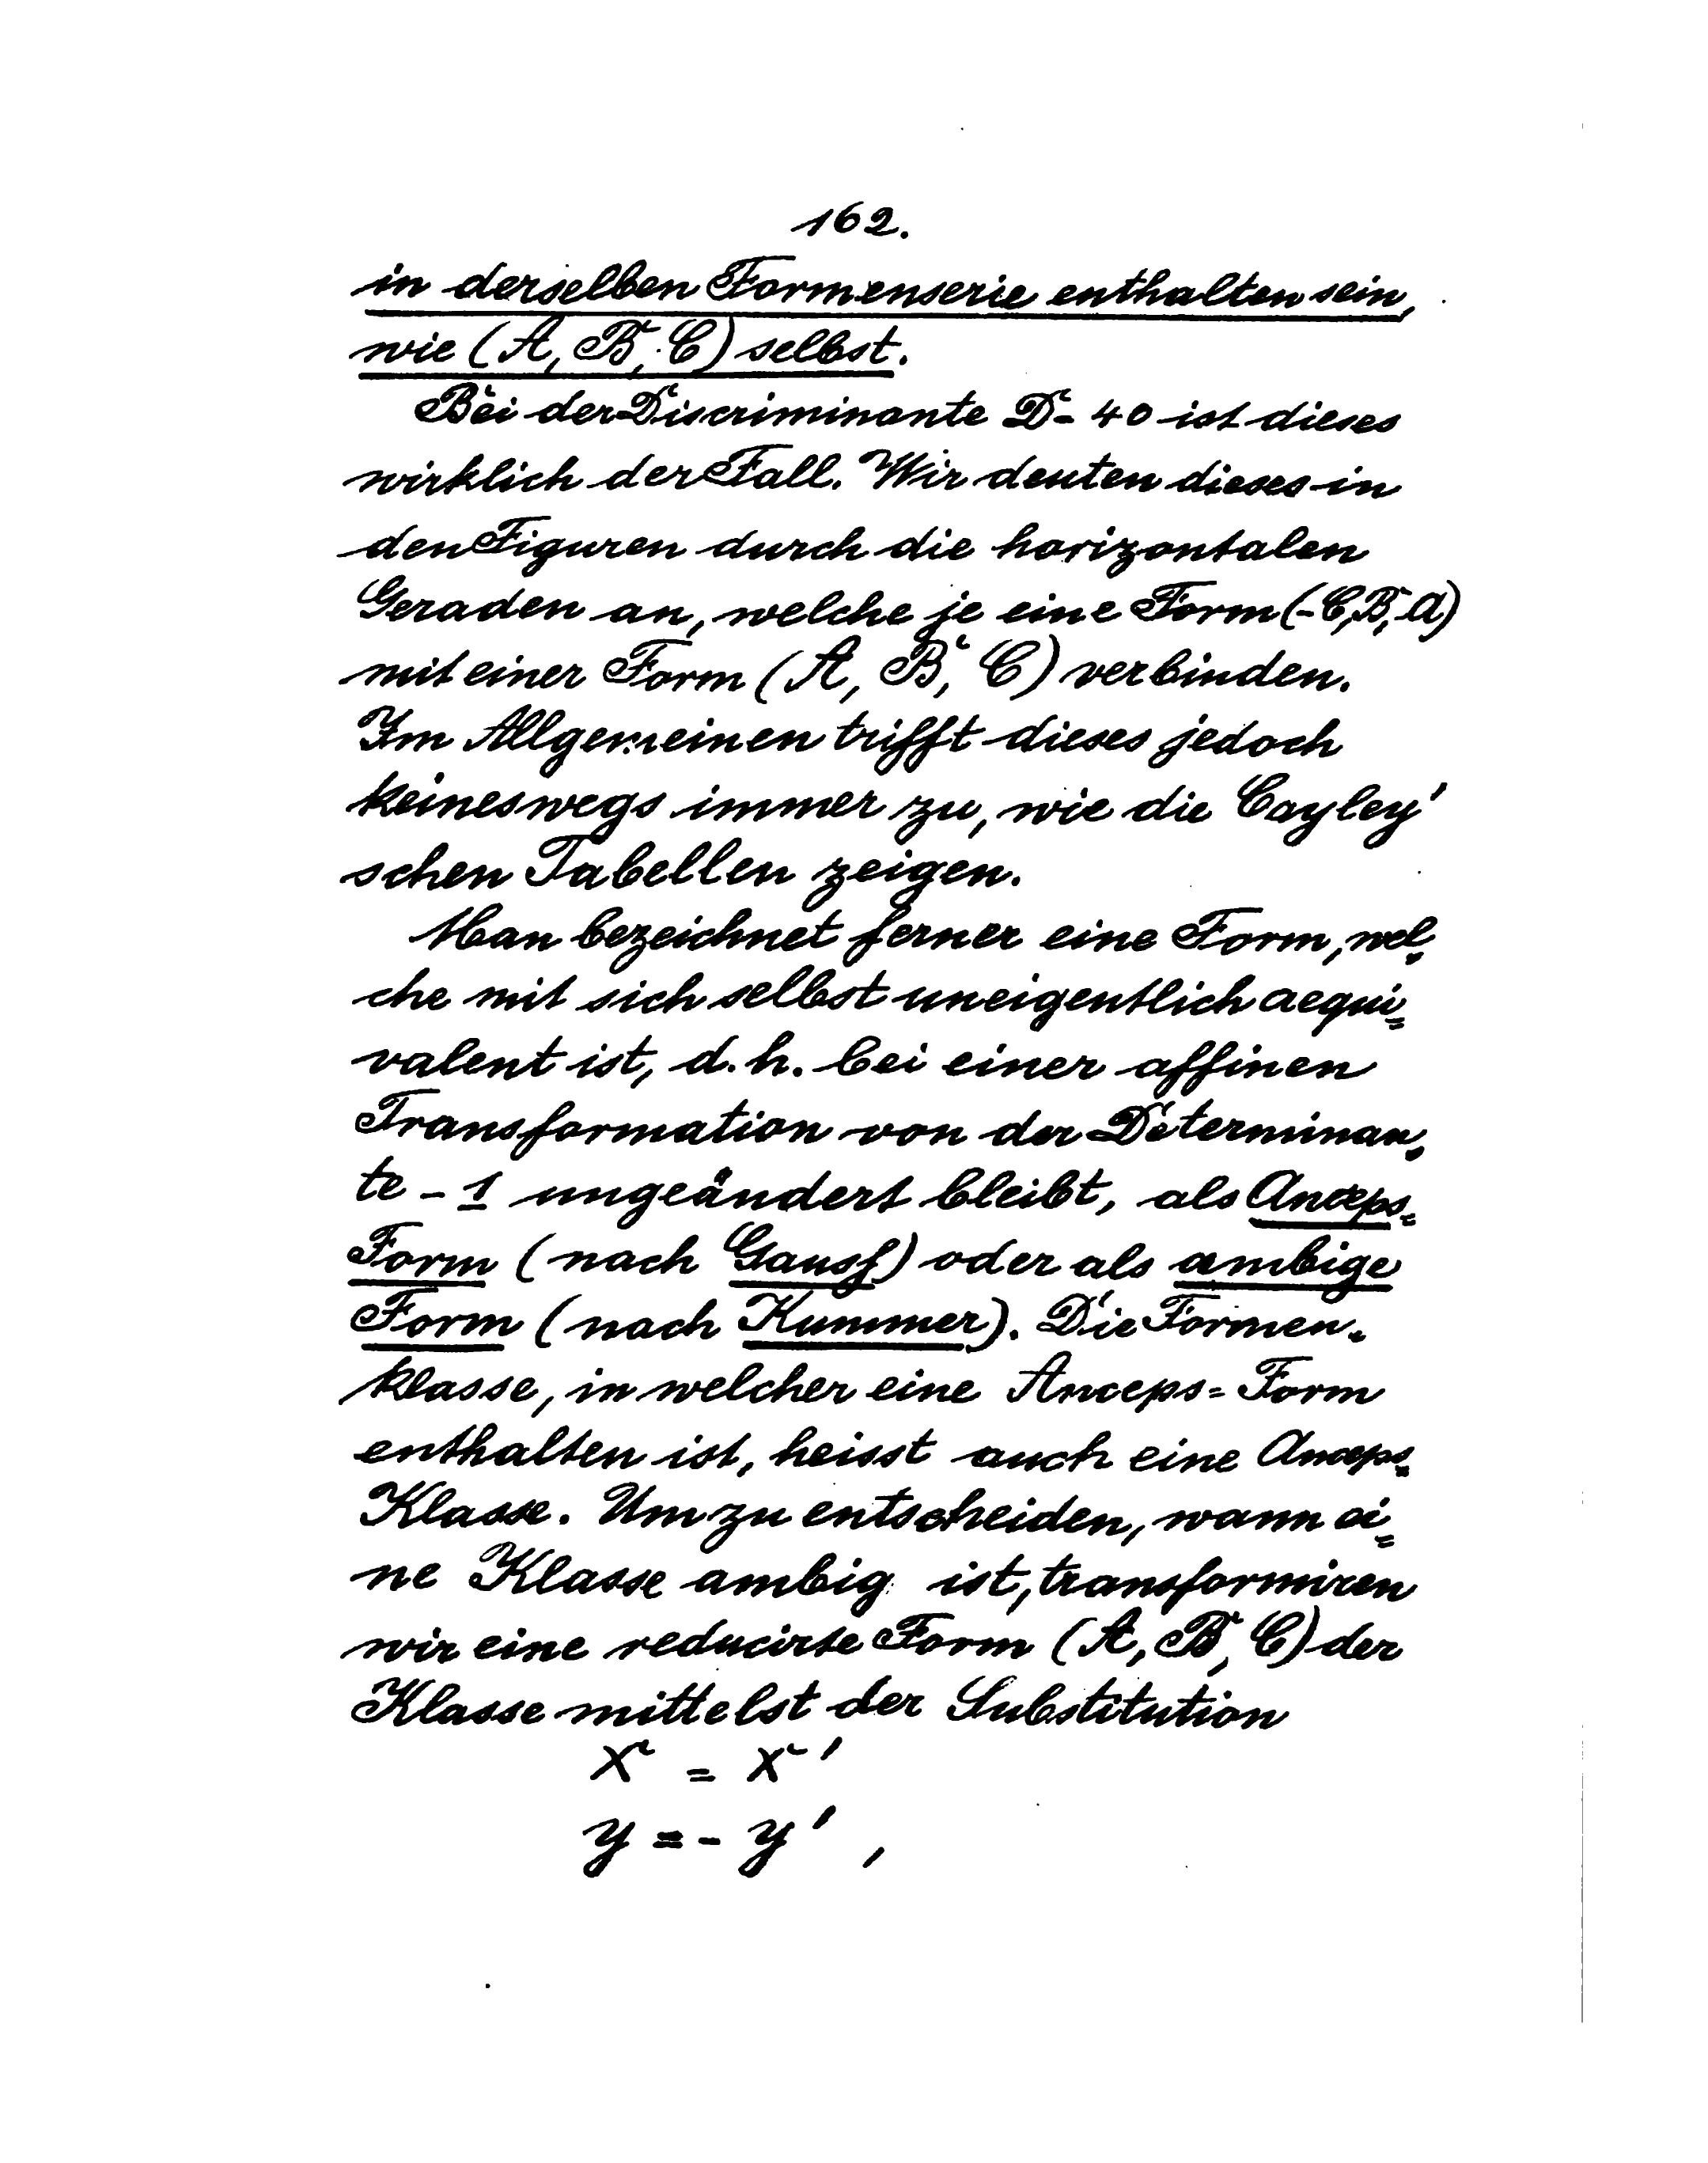 162.
in derselben Formenserie enthalten sein,
wie (A, B, C) selbst.
Bei der Discriminante D = 40 ist dieses
wirklich der Fall. Wir deuten dieses in
den Figuren durch die horizontalen
Geraden an, welche je eine Form (-C, B, -A)
mit einer Form (A, B, C) verbinden.
Im Allgemeinen trifft dieses jedoch
keineswegs immer zu, wie die Cayley'
schen Tabellen zeigen.
Man bezeichnet ferner eine Form, wel-
che mit sich selbst uneigentlich aequi=
valent ist, d. h. bei einer affinen
Transformation von der Determinan-
te - 1 ungeändert bleibt, als Anceps=
Form (nach Gauss) oder als ambige
Form (nach Kummer). Die Formen-
klasse, in welcher eine Anceps=Form
enthalten ist, heisst auch eine Anceps=
Klasse. Um zu entscheiden, wann ei=
ne Klasse ambig ist, transformiren
wir eine reducirte Form (A, B, C) der
Klasse mittelst der Substitution
x = x'
y = - y' ,